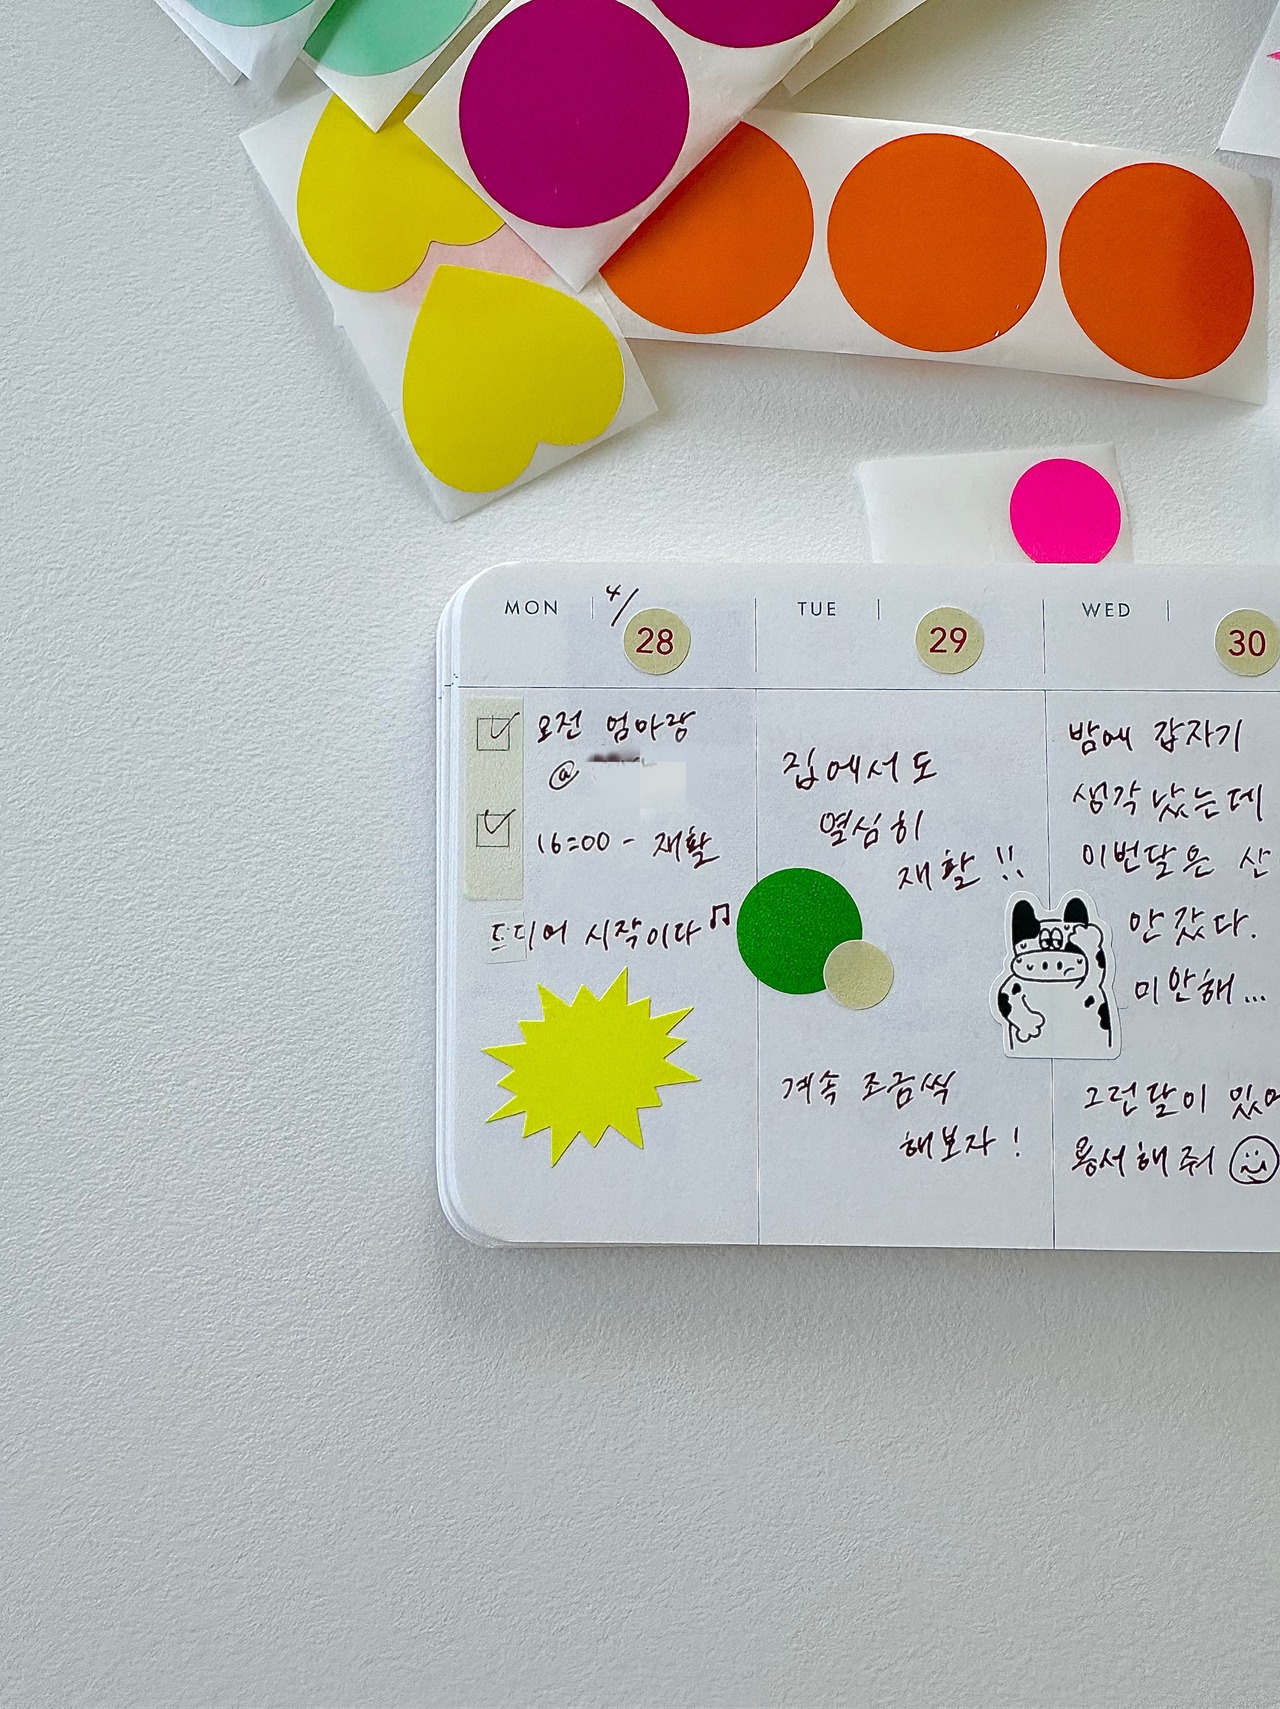 MON
4/
28
오전 엄마랑
@
16:00 - 재활
드디어 시작이다
TUE
29
집에서도
열심히
재활 !!
계속 조금씩
해보자 !
WED
30
밤에 갑자기
생각났는데
이번달은 산
안 갔다.
미안해...
그런달이 있어
용서해줘